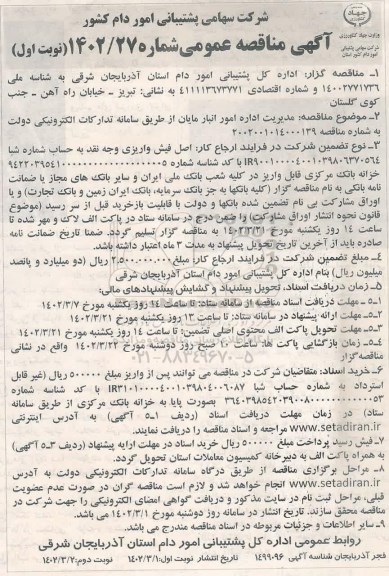 جهاد
وزارت جهاد کشاورزی
شرکت سهامی پشتیبانی
امور دام کشور استان
شرکت سهامی پشتیبانی امور دام کشور
آگهی مناقصه عمومی شماره ۱۴۰۲/۲۷ (نوبت اول)
۱ـ مناقصه گزار: اداره کل پشتیبانی امور دام استان آذربایجان شرقی به شناسه ملی
۱۴۰۰۲۷۷۱۷۳۶ و شماره اقتصادی ۴۱۱۱۱۳۶۷۳۷۷۱ به نشانی: تبریز ـ خیابان راه آهن ـ جنب
کوی گلستان
۲ـ موضوع مناقصه: مدیریت اداره امور انبار مایان از طریق سامانه تدارکات الکترونیکی دولت
به شماره مناقصه ۲۰۰۲۰۰۱۰۱۴۰۰۰۱۳۹
۳ـ نوع تضمین شرکت در فرایند ارجاع کار: اصل فیش واریزی وجه نقد به حساب شماره شبا
IR۹۰۰۱۰۰۰۰۴۰۰۱۰۳۹۸۰۶۳۷۰۵۶۴ با کد شناسه شماره ۹۴۲۲۰۳۹۵۴۱۰۰۰۰۰۰۰۰۰۰۰۰۰۰۰۰۵
خزانه بانک مرکزی قابل واریز در کلیه شعب بانک ملی ایران و سایر بانک های مجاز یا ضمانت
نامه بانکی به نام مناقصه گزار (کلیه بانکها به جز بانک سرمایه، بانک ایران زمین و بانک تجارت) و یا
اوراق مشارکت بی نام تضمین شده بانکها و دولت با قابلیت بازخرید قبل از سر رسید (موضوع
قانون نحوه انتشار اوراق مشارکت) را ضمن درج در سامانه ستاد در پاکت الف لاک و مهر شده تا
ساعت ۱۴ روز یکشنبه مورخ ۱۴۰۲/۳/۲۱ به مناقصه گزار تسلیم گردد. ضمنا تاریخ ضمانت نامه
صادره باید از آخرین تاریخ تحویل پیشنهاد به مدت ۳ ماه اعتبار داشته باشد.
۴ـ مبلغ تضمین شرکت در فرایند ارجاع کار: مبلغ ۲.۵۰۰.۰۰۰.۰۰۰ ریال (دو میلیارد و پانصد
میلیون ریال) بنام اداره کل پشتیبانی امور دام استان آذربایجان شرقی
۵ـ زمان دریافت اسناد، تحویل پیشنهاد و گشایش پیشنهادهای مالی:
۵ـ۱ـ مهلت دریافت اسناد مناقصه از سامانه ستاد: تا ساعت ۱۴ روز یکشنبه مورخ ۱۴۰۲/۳/۷
۵ـ۲ـ مهلت ارائه پیشنهاد در سامانه ستاد: تا ساعت ۱۳ روز یکشنبه مورخ ۱۴۰۲/۳/۲۱
۵ـ۳ـ مهلت تحویل پاکت الف محتوی اصلی تضمین: تا ساعت ۱۴ روز یکشنبه مورخ ۱۴۰۲/۳/۲۱
۵ـ۴ـ زمان بازگشایی پاکت ها: ساعت صبح روز دوشنبه مورخ ۱۴۰۲/۳/۲۲ واقع در نشانی
مناقصه گزار
۶ـ خرید اسناد: متقاضیان شرکت در مناقصه می توانند پس از واریز مبلغ ۵۰۰۰۰۰ ریال (غیر قابل
استرداد به شماره حساب شبا IR۳۱۰۱۰۰۰۰۴۰۰۱۰۳۹۸۰۴۰۰۶۰۸۷ با کد شناسه شماره
بصورت پایا به خزانه بانک مرکزی از طریق سامانه
ستاد) در زمان مهلت دریافت اسناد (ردیف ۱ـ۵ آگهی) به آدرس اینترنتی
www.setadiran.ir مراجعه و اسناد مناقصه را دریافت نمایند.
۷ـ فیش رسید پرداخت مبلغ ۵۰۰۰۰۰ ریال خرید اسناد در مهلت ارایه پیشنهاد (ردیف ۳ـ۵ آگهی)
به همراه پاکت الف به دبیرخانه کمیسیون معاملات استان تحویل گردد.
۸ـ مراحل برگزاری مناقصه از طریق درگاه سامانه تدارکات الکترونیکی دولت به آدرس
www.setadiran.ir انجام خواهد شد و لازم است مناقصه گران در صورت عدم عضویت
قبلی، مراحل ثبت نام در سایت مذکور و دریافت گواهی امضای الکترونیکی را جهت شرکت در
مناقصه محقق سازند. تاریخ انتشار در سامانه روز دوشنبه مورخ ۱۴۰۲/۳/۱ می باشد.
۹ـ سایر اطلاعات و جزئیات مربوطه در اسناد مناقصه مندرج می باشد.
روابط عمومی اداره کل پشتیبانی امور دام استان آذربایجان شرقی
فجر آذربایجان شناسه آگهی ۱۴۹۹۰۹۶ تاریخ انتشار نوبت اول:۱۴۰۲/۳/۱ نوبت دوم:۱۴۰۲/۳/۲